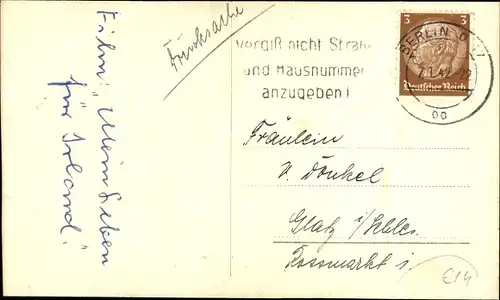 Film: "Mein Leben
für Irland"
Drucksache
Vergiß nicht Straße
und Hausnummer
anzugeben!
3 3
Deutsches Reich
BERLIN
Fräulein
V. Dönkel
Glatz i/Schles.
Rossmarkt 1.
€14